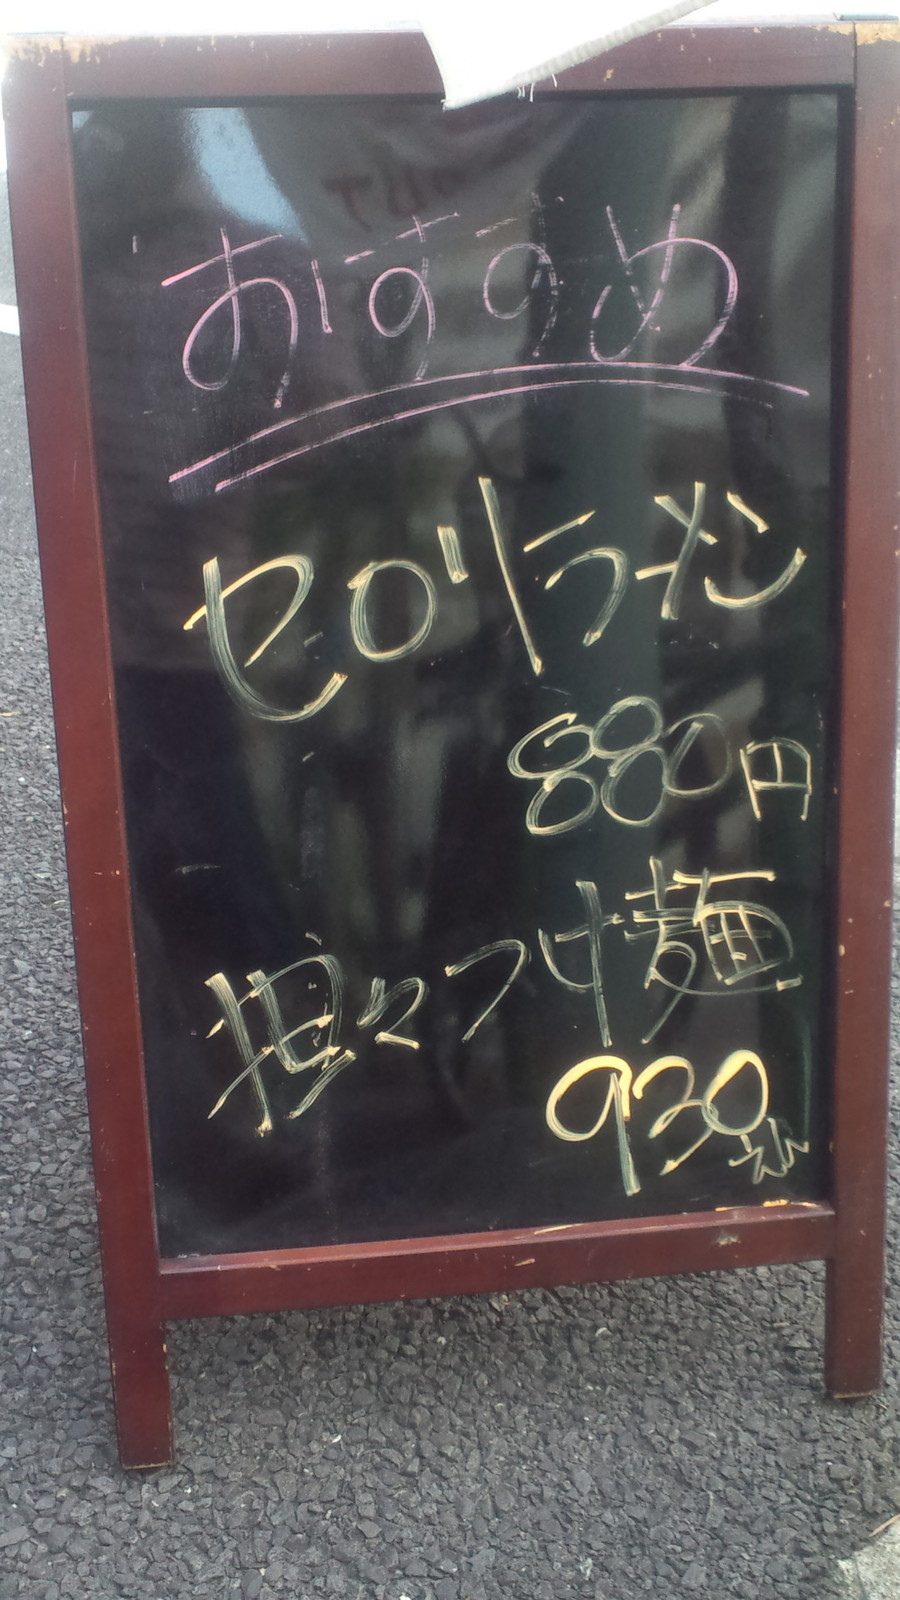 おすすめ
セロリラーメン
880円
担々つけ麺
930えん